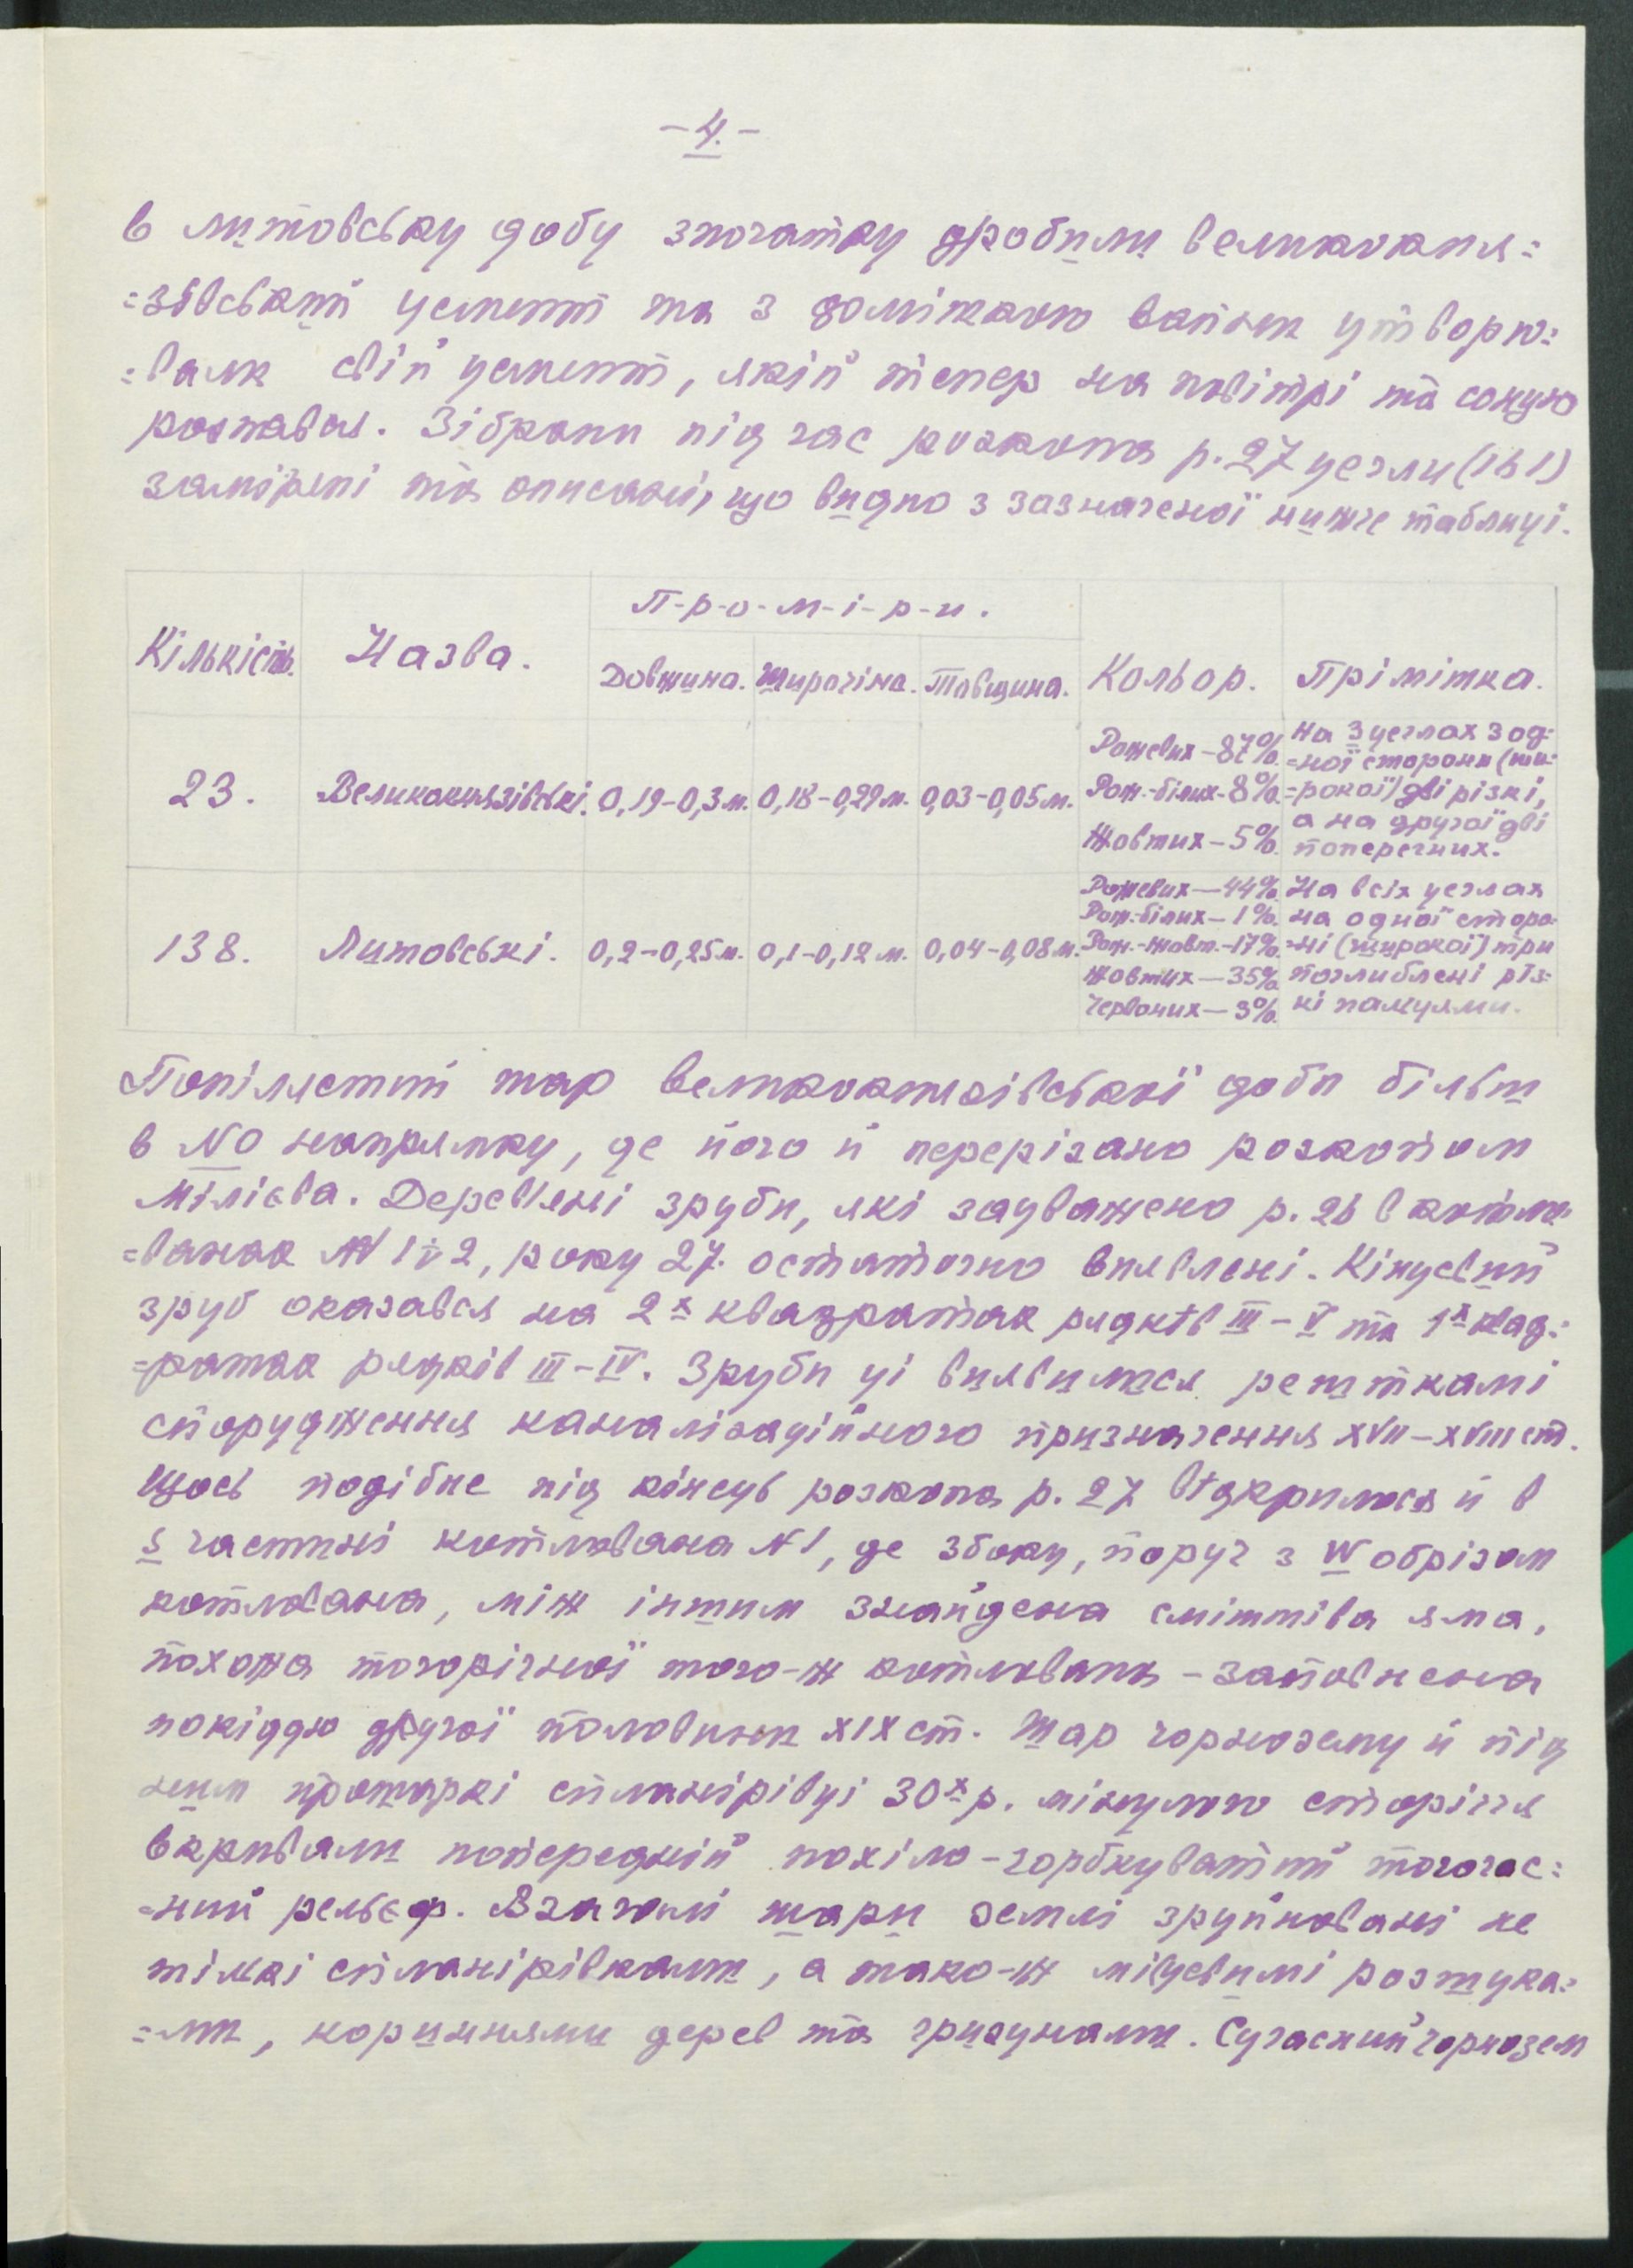 -4.-
в литовську добу зпочатку дробили великокня=
=зівський цемент та з домішкою вапни утворю=
=вали свій цемент, якій тепер на повітрі та сонцю
роспався. Зібрани під час розкопа р. 27 цегли (161)
заміряні та описані, що видно з зазначеної нижче таблиці.
П-р-о-м-і-р-и.
Кількість. Назва. Довжина. Ширачіна. Товщина. Кольор. Прімітка.
23. Великокнязівські. 0,19-0,3 м. 0,18-0,29 м. 0,03-0,05 м.
Рожевих-87%.
Рож.-білих-8%.
Жовтих-5%.
на 3 цеглах з од=
=ної сторони (ши=
=рокої) дві різкі,
а на другої дві
поперечних.
138. Литовські. 0,2-0,25 м. 0,1-0,12 м. 0,04-0,08 м.
Рожевих-44%.
Рож.-білих-1%.
Рож.-жовт.-17%.
Жовтих-35%.
Червоних-3%.
На всіх цеглах
на одної сторо=
=ні (широкої) три
поглиблені різ=
кі пальцями.
Попілястий шар великокнязівської доби більш
в NO напрямку, де його й перерізано розкопом
Мілієва. Дерев'яні зруби, які зауважено р. 26 в котло=
=ванах № 1 і 2, року 27. остаточно виявлені. Кінцевий
зруб оказався на 2х квадратах рядків III-V та 1х квад=
=ратах рядків III-IV. Зруби ці виявилися рештками
спорудження каналізаційного призначення XVII-XVIII ст.
Щось подібне під кінець розкопа р. 27 відкрилося й в
S частині котлована №1, де збоку, поруч з W обрізом
котлована, між іншим знайдена смітнива яма,
похожа тогорічної того-ж котлована - заповнена
покіддю другої половини XIX ст. Шар чорнозему й під
ним прошаркі спланірівці 30х р. мінулого сторіччя
вкривали попередній похіло-горбкуватий тогочас=
=ний рельєф. Взагалі шари землі зруйновані не
тількі спланірівками, а тако-ж місцевимі розшука=
=ми, коріннями дерев та гризунами. Сучасний чорнозем